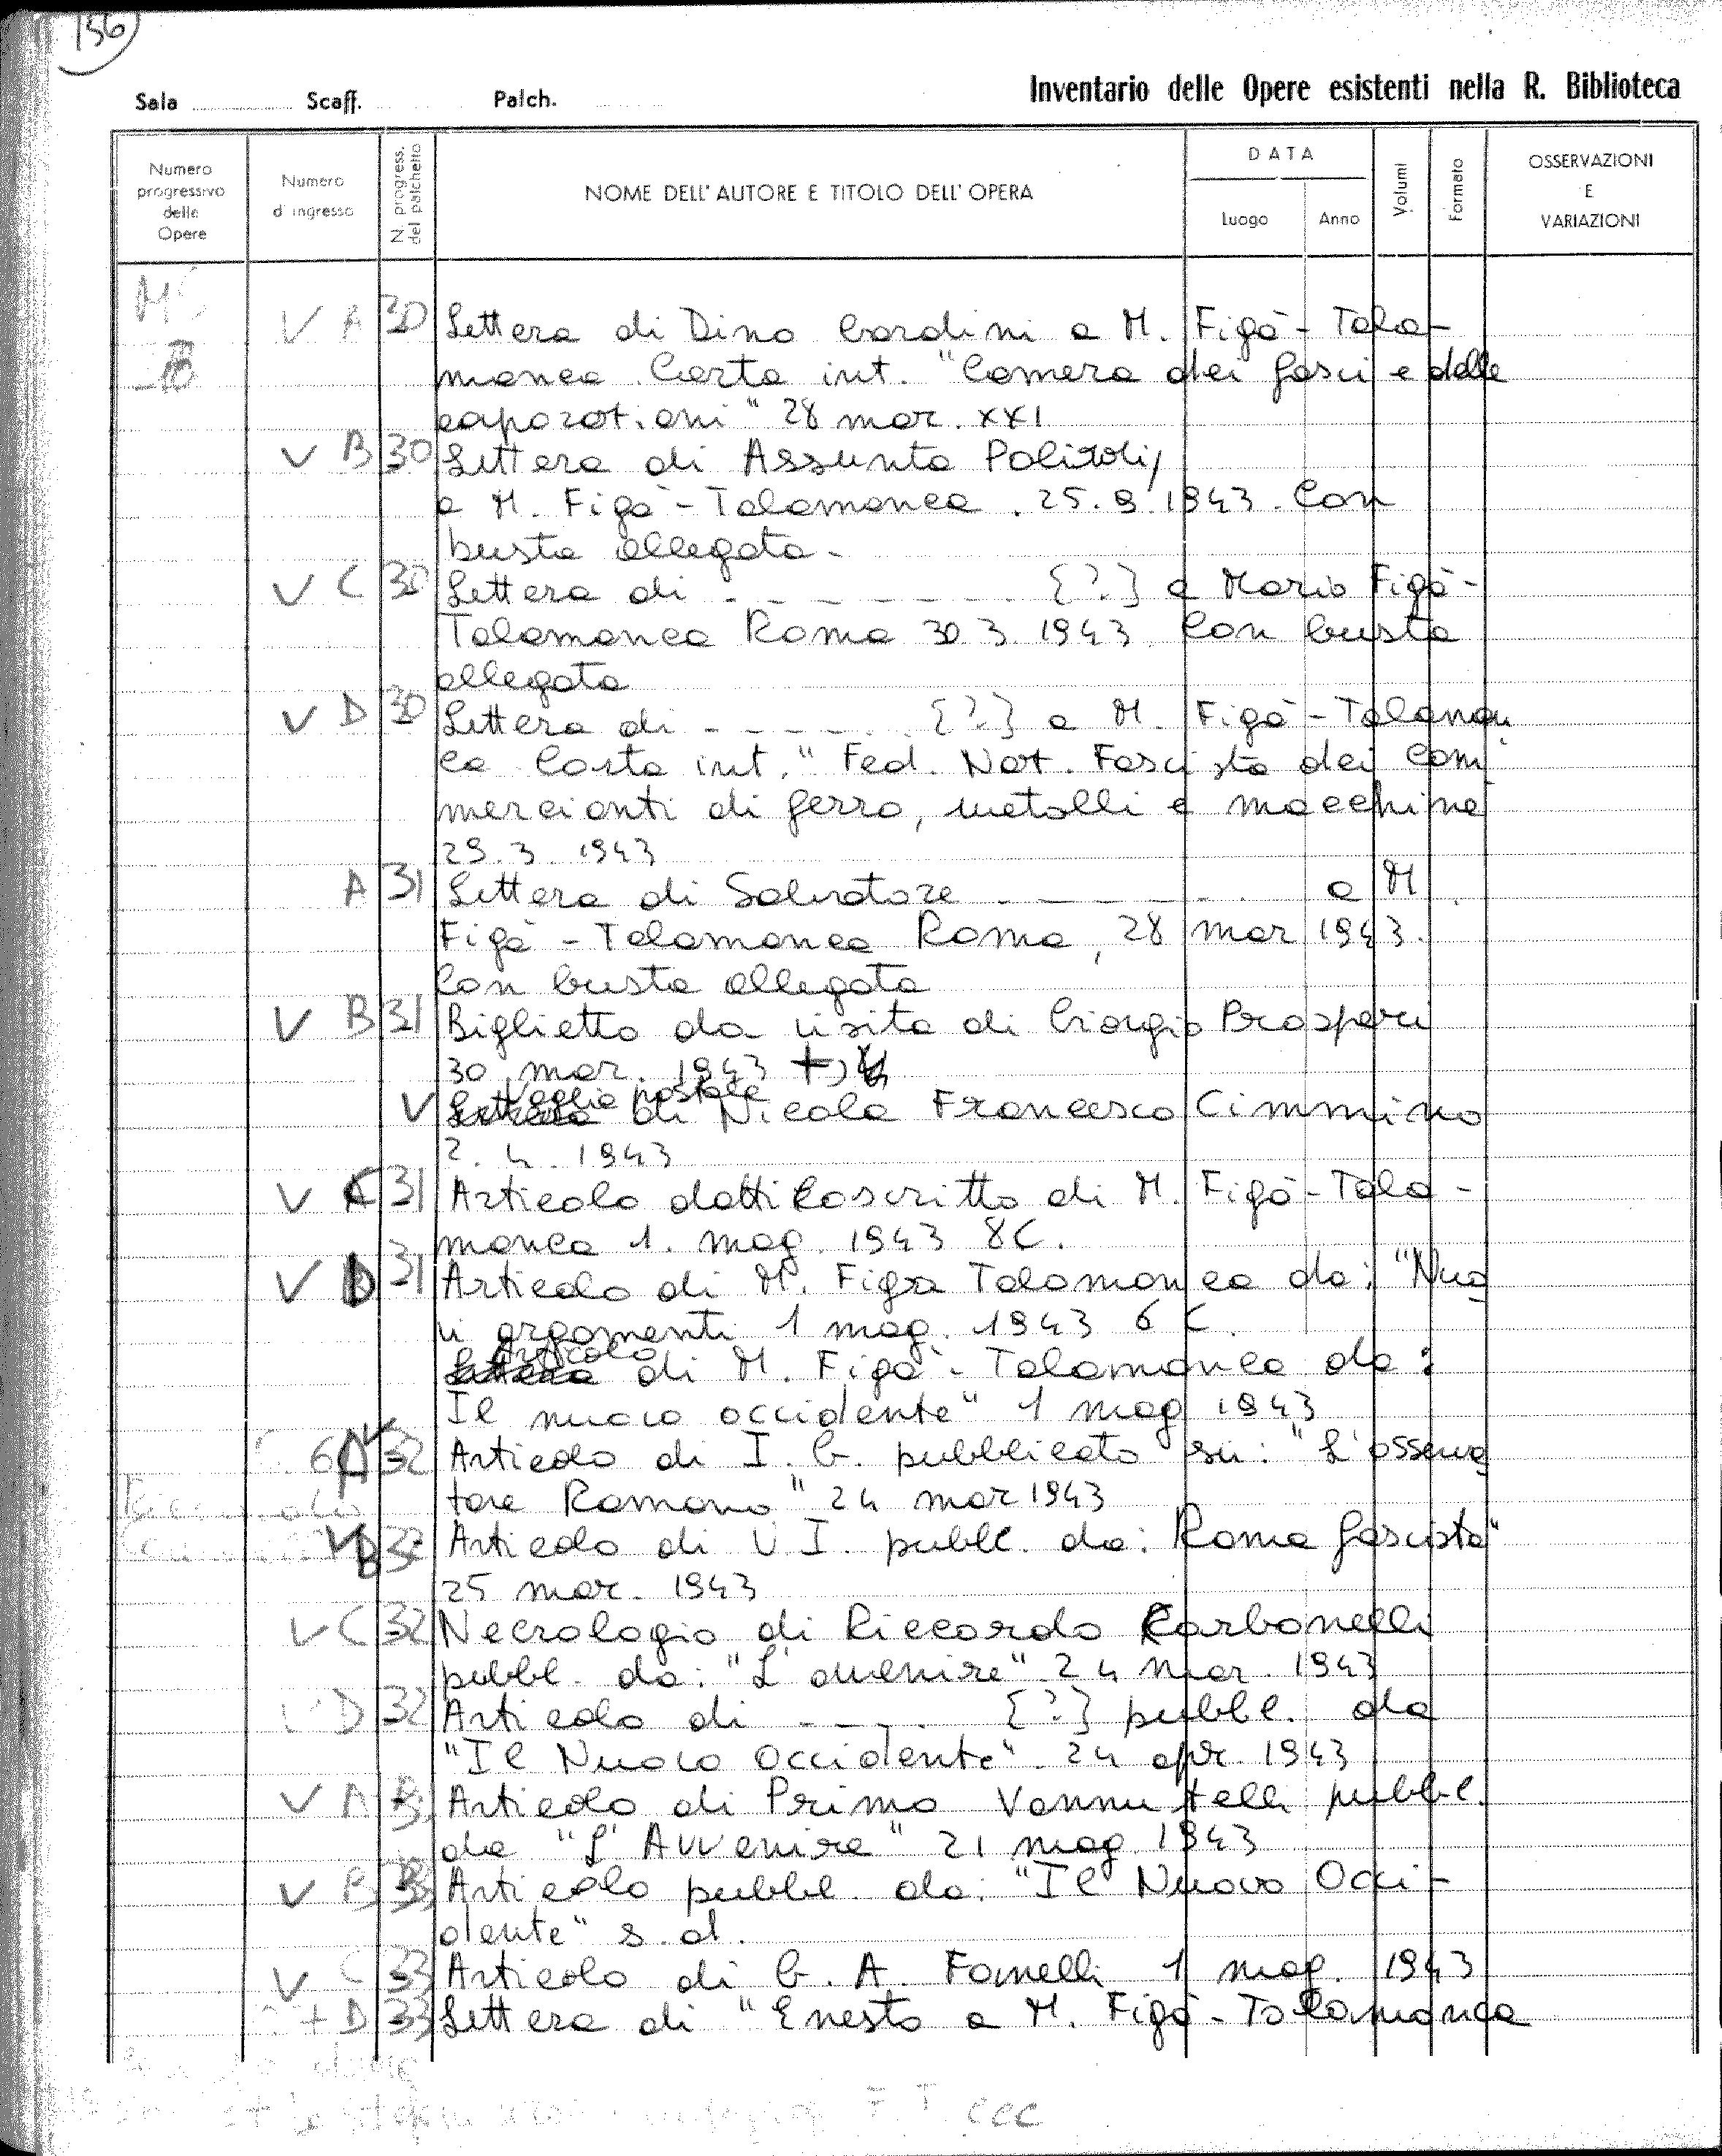 156
Sala Scaff. Palch. Inventario delle Opere esistenti nella R. Biblioteca
Numero progressivo delle Opere
Numero d'ingresso
N. progress. del palchetto
NOME DELL'AUTORE E TITOLO DELL'OPERA
DATA
Luogo
Anno
Volumi
Formato
OSSERVAZIONI E VARIAZIONI
V A 30 Lettera di Dino Gardini a M. Figà-Tala-
manca. Carta int. "Camera dei fasci e delle
coporazioni" 28 mar. XXI
V B 30 Lettera di Assunta
a M. Figà-Talamanca. 25.9.1943. Con
busta allegata-
V C 30 Lettera di - - - - - - - [?] a Mario Figà-
Talamanca Roma 30 3. 1943 Con busta
allegata
V D 30 Lettera di - - - - - [?] a M. Figà-Talaman
ca Carta int. "Fed. Naz. Fascista dei Com
mercianti di ferro, metalli e macchine
29.3.1943
A 31 Lettera di Salvatore - - - - - a M
Figà-Talamanca Roma, 28 mar 1943.
Con busta allegata
V B 31 Biglietto da visita di Giorgio Prosperi
30 mar. 1943 +
Vaglia postale
V di Nicola Francesco Cimmino
2. 4. 1943
V C 31 Articolo dattiloscritto di M. Figà-Tala-
manca 1. mag. 1943 8 C.
V D 31 Articolo di M. Figa Talamanca da: "Nuo
vi argomenti 1 mag. 1943 6 C.
Articolo
di M. Figà-Talamanca da:
Il nuovo occidente" 1 mag 1943
A 32 Articolo di I. G. pubblicato su: "L'osserva
tore Romano" 24 mar 1943
V B 32 Articolo di V. I. pubbl. da: Roma fascista"
25 mar. 1943
V C 32 Necrologio di Riccardo Carbonelli
pubbl. da: "L'avvenire" 24 mar. 1943
V D 32 Articolo di - - - - [?] pubbl. da
"Il Nuovo Occidente". 24 apr. 1943
V A 33 Articolo di Primo Vannutelli pubbl.
da "L'Avvenire" 21 mag. 1943
V B 33 Articolo pubbl. da: "Il Nuovo Occi-
dente" s.d.
V C 33 Articolo di G. A. Fanelli 1 mag. 1943
+ D 33 Lettera di "Enesto a M. Figà-Talamanca